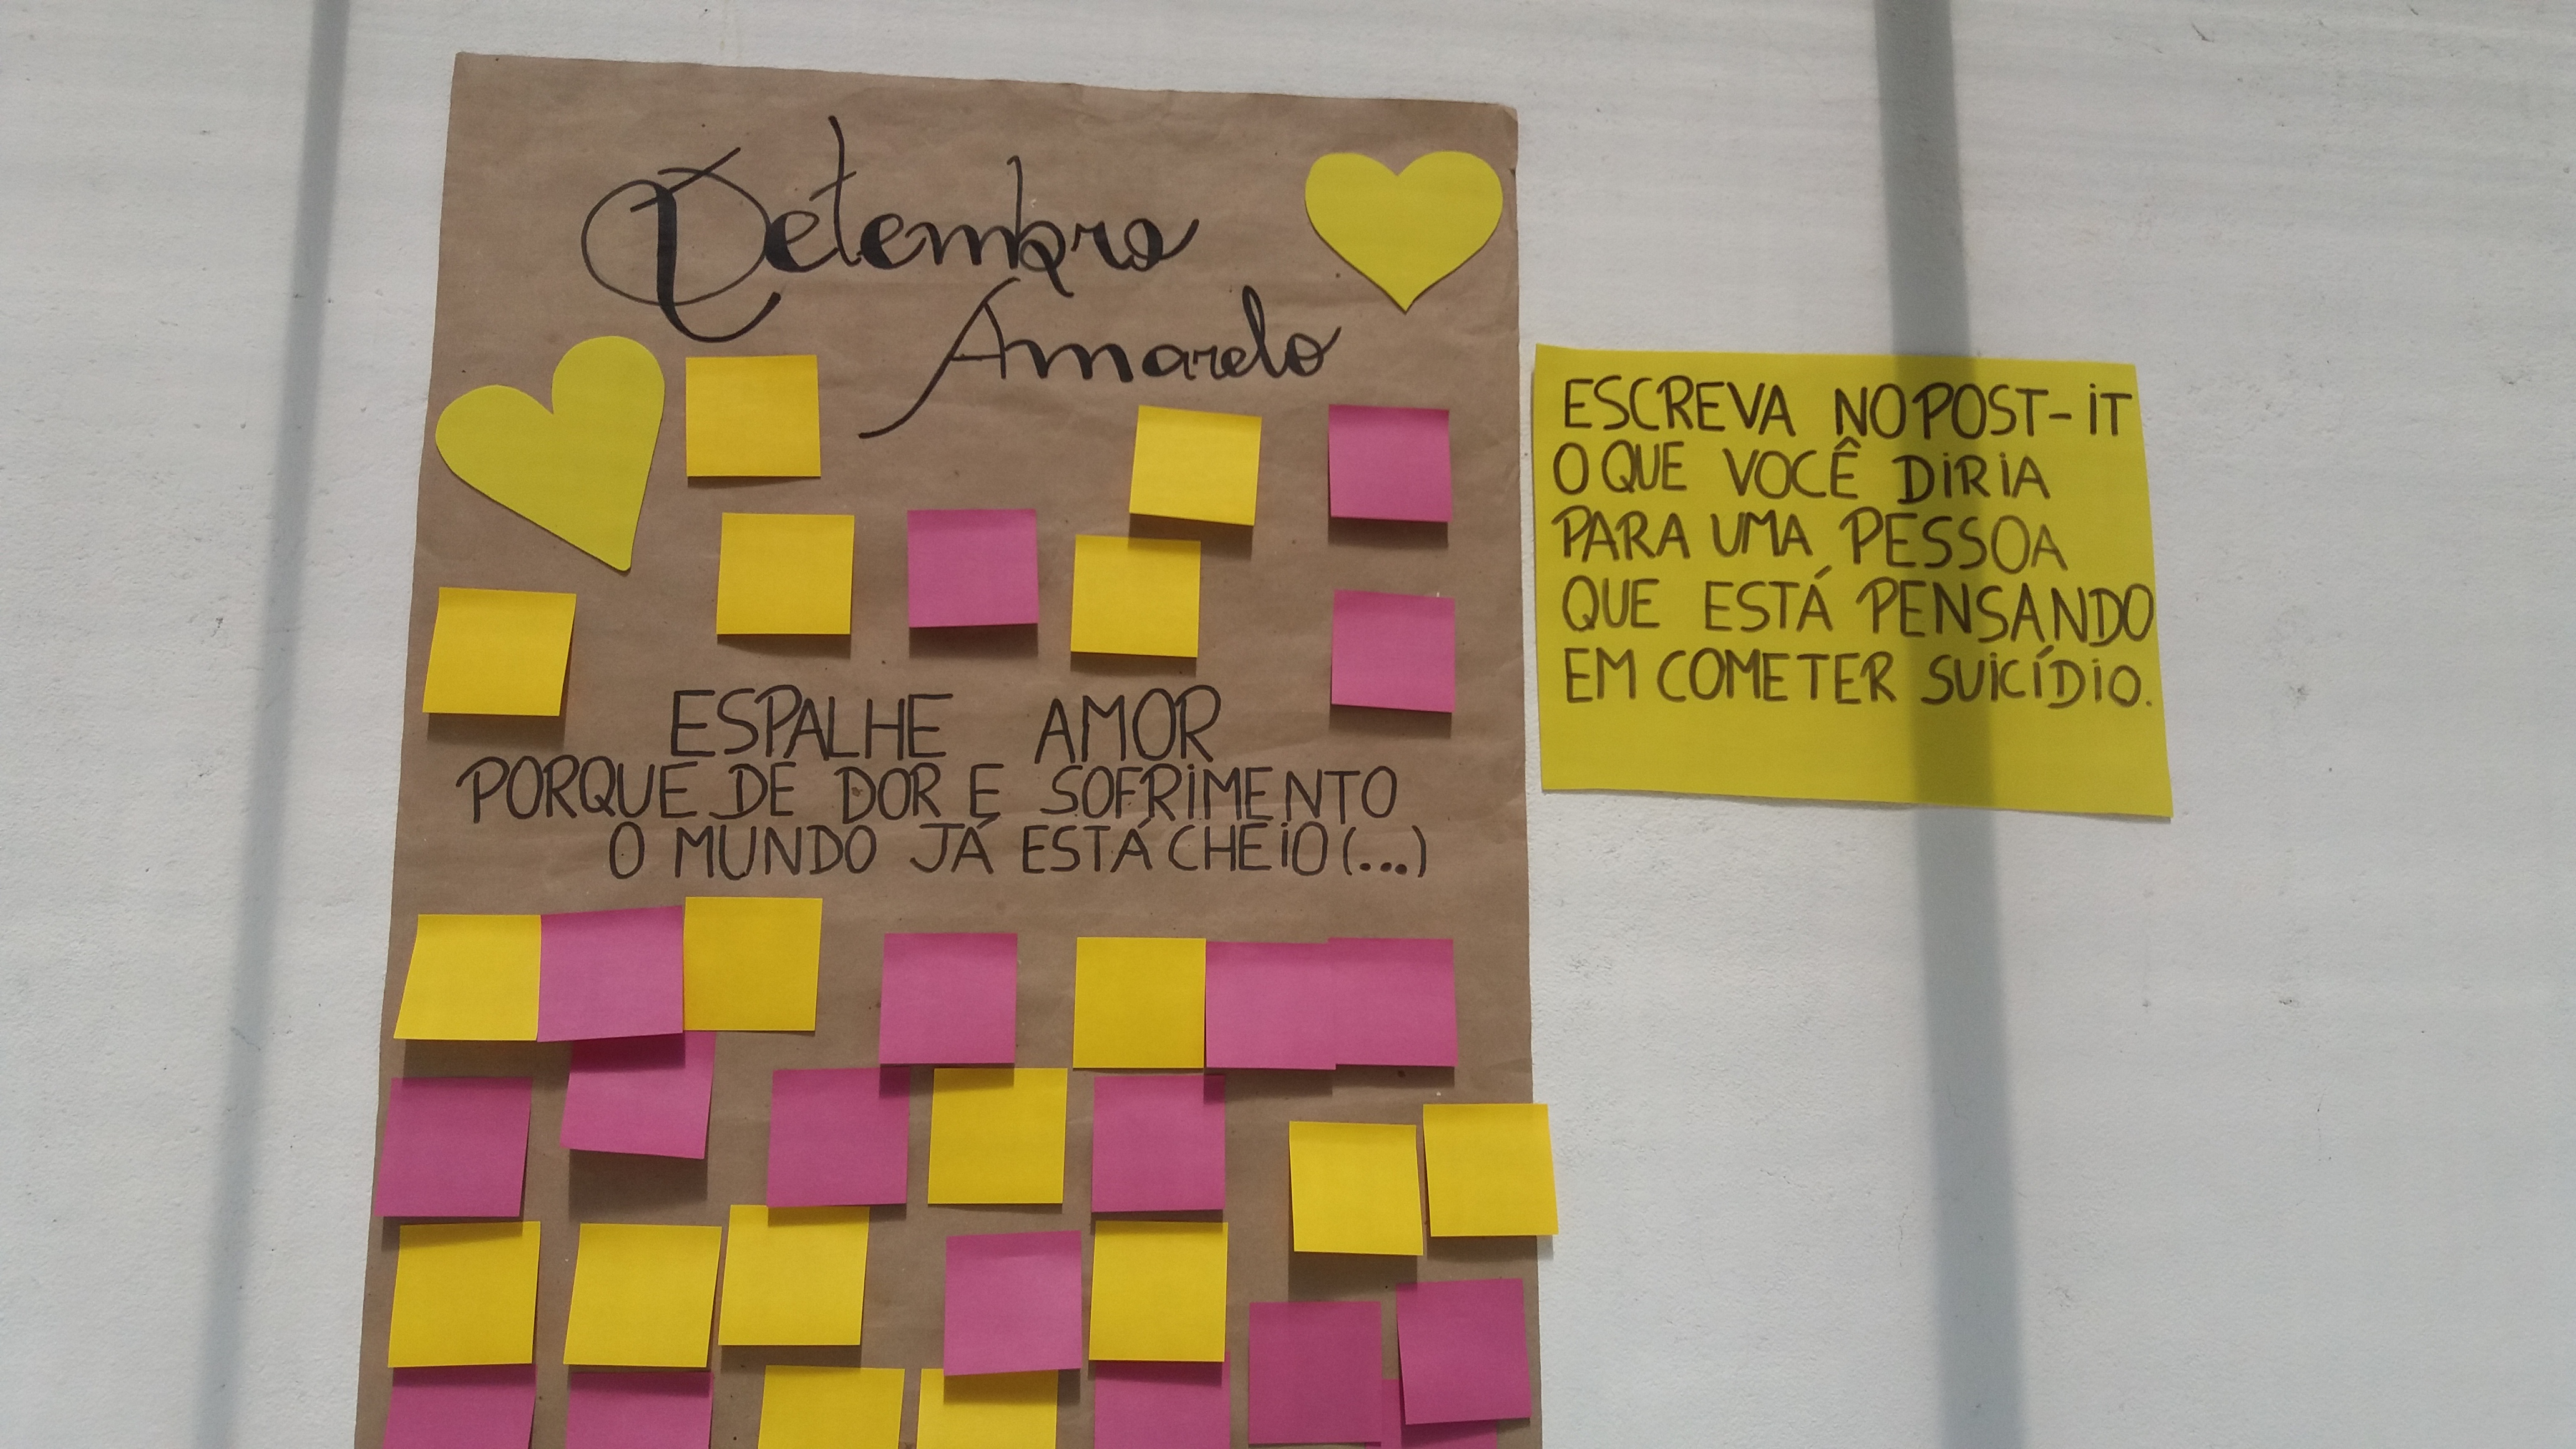 Setembro
Amarelo
ESPALHE AMOR
PORQUE DE DOR E SOFRIMENTO
O MUNDO JÁ ESTÁ CHEIO (...)
ESCREVA NO POST-IT
O QUE VOCÊ DIRIA
PARA UMA PESSOA
QUE ESTÁ PENSANDO
EM COMETER SUICÍDIO.